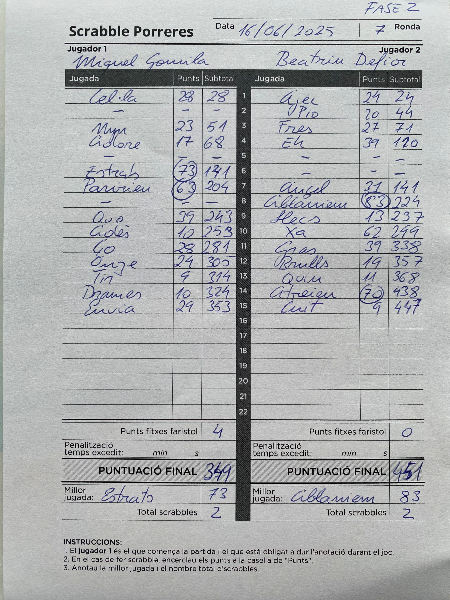 FASE 2
Scrabble Porreres Data 16/06/2025 7 Ronda
Jugador 1 Jugador 2
Miquel Gomila Beatriu Defior
Jugada Punts Subtotal Jugada Punts Subtotal
Cel·la 28 28 1 Ajec 24 24
- - - 2 Pio 20 44
Nyu 23 51 3 Fres 27 71
Colore 17 68 4 Eh 39 110
- - - 5 - - -
Estràs 73 141 6 - - -
Paririen 63 204 7 Àngel 31 141
- - - 8 Ablamiem 83 224
Quo 39 243 9 Hecs 13 237
Cidés 10 253 10 Xa 62 299
Go 28 281 11 Gras 39 338
Onze 24 305 12 Rmulls 19 357
Tin 9 314 13 Quin 11 368
Drames 10 324 14 70 438
Envia 29 353 15 9 447
16
17
18
19
20
21
22
Punts fitxes faristol 4 Punts fitxes faristol 0
Penalització
temps excedit: min s Penalització
temps excedit: min s
PUNTUACIÓ FINAL 349 PUNTUACIÓ FINAL 451
Millor
jugada: Estrats 73 Millor
jugada: Ablamiem 83
Total scrabbles 2 Total scrabbles 2
INSTRUCCIONS:
1. El Jugador 1 és el que comença la partida i el que està obligat a dur l'anotació durant el joc.
2. En el cas de fer scrabble, encerclau els punts a la casella de "Punts".
3. Anotau la millor jugada i el nombre total d'scrabbles.